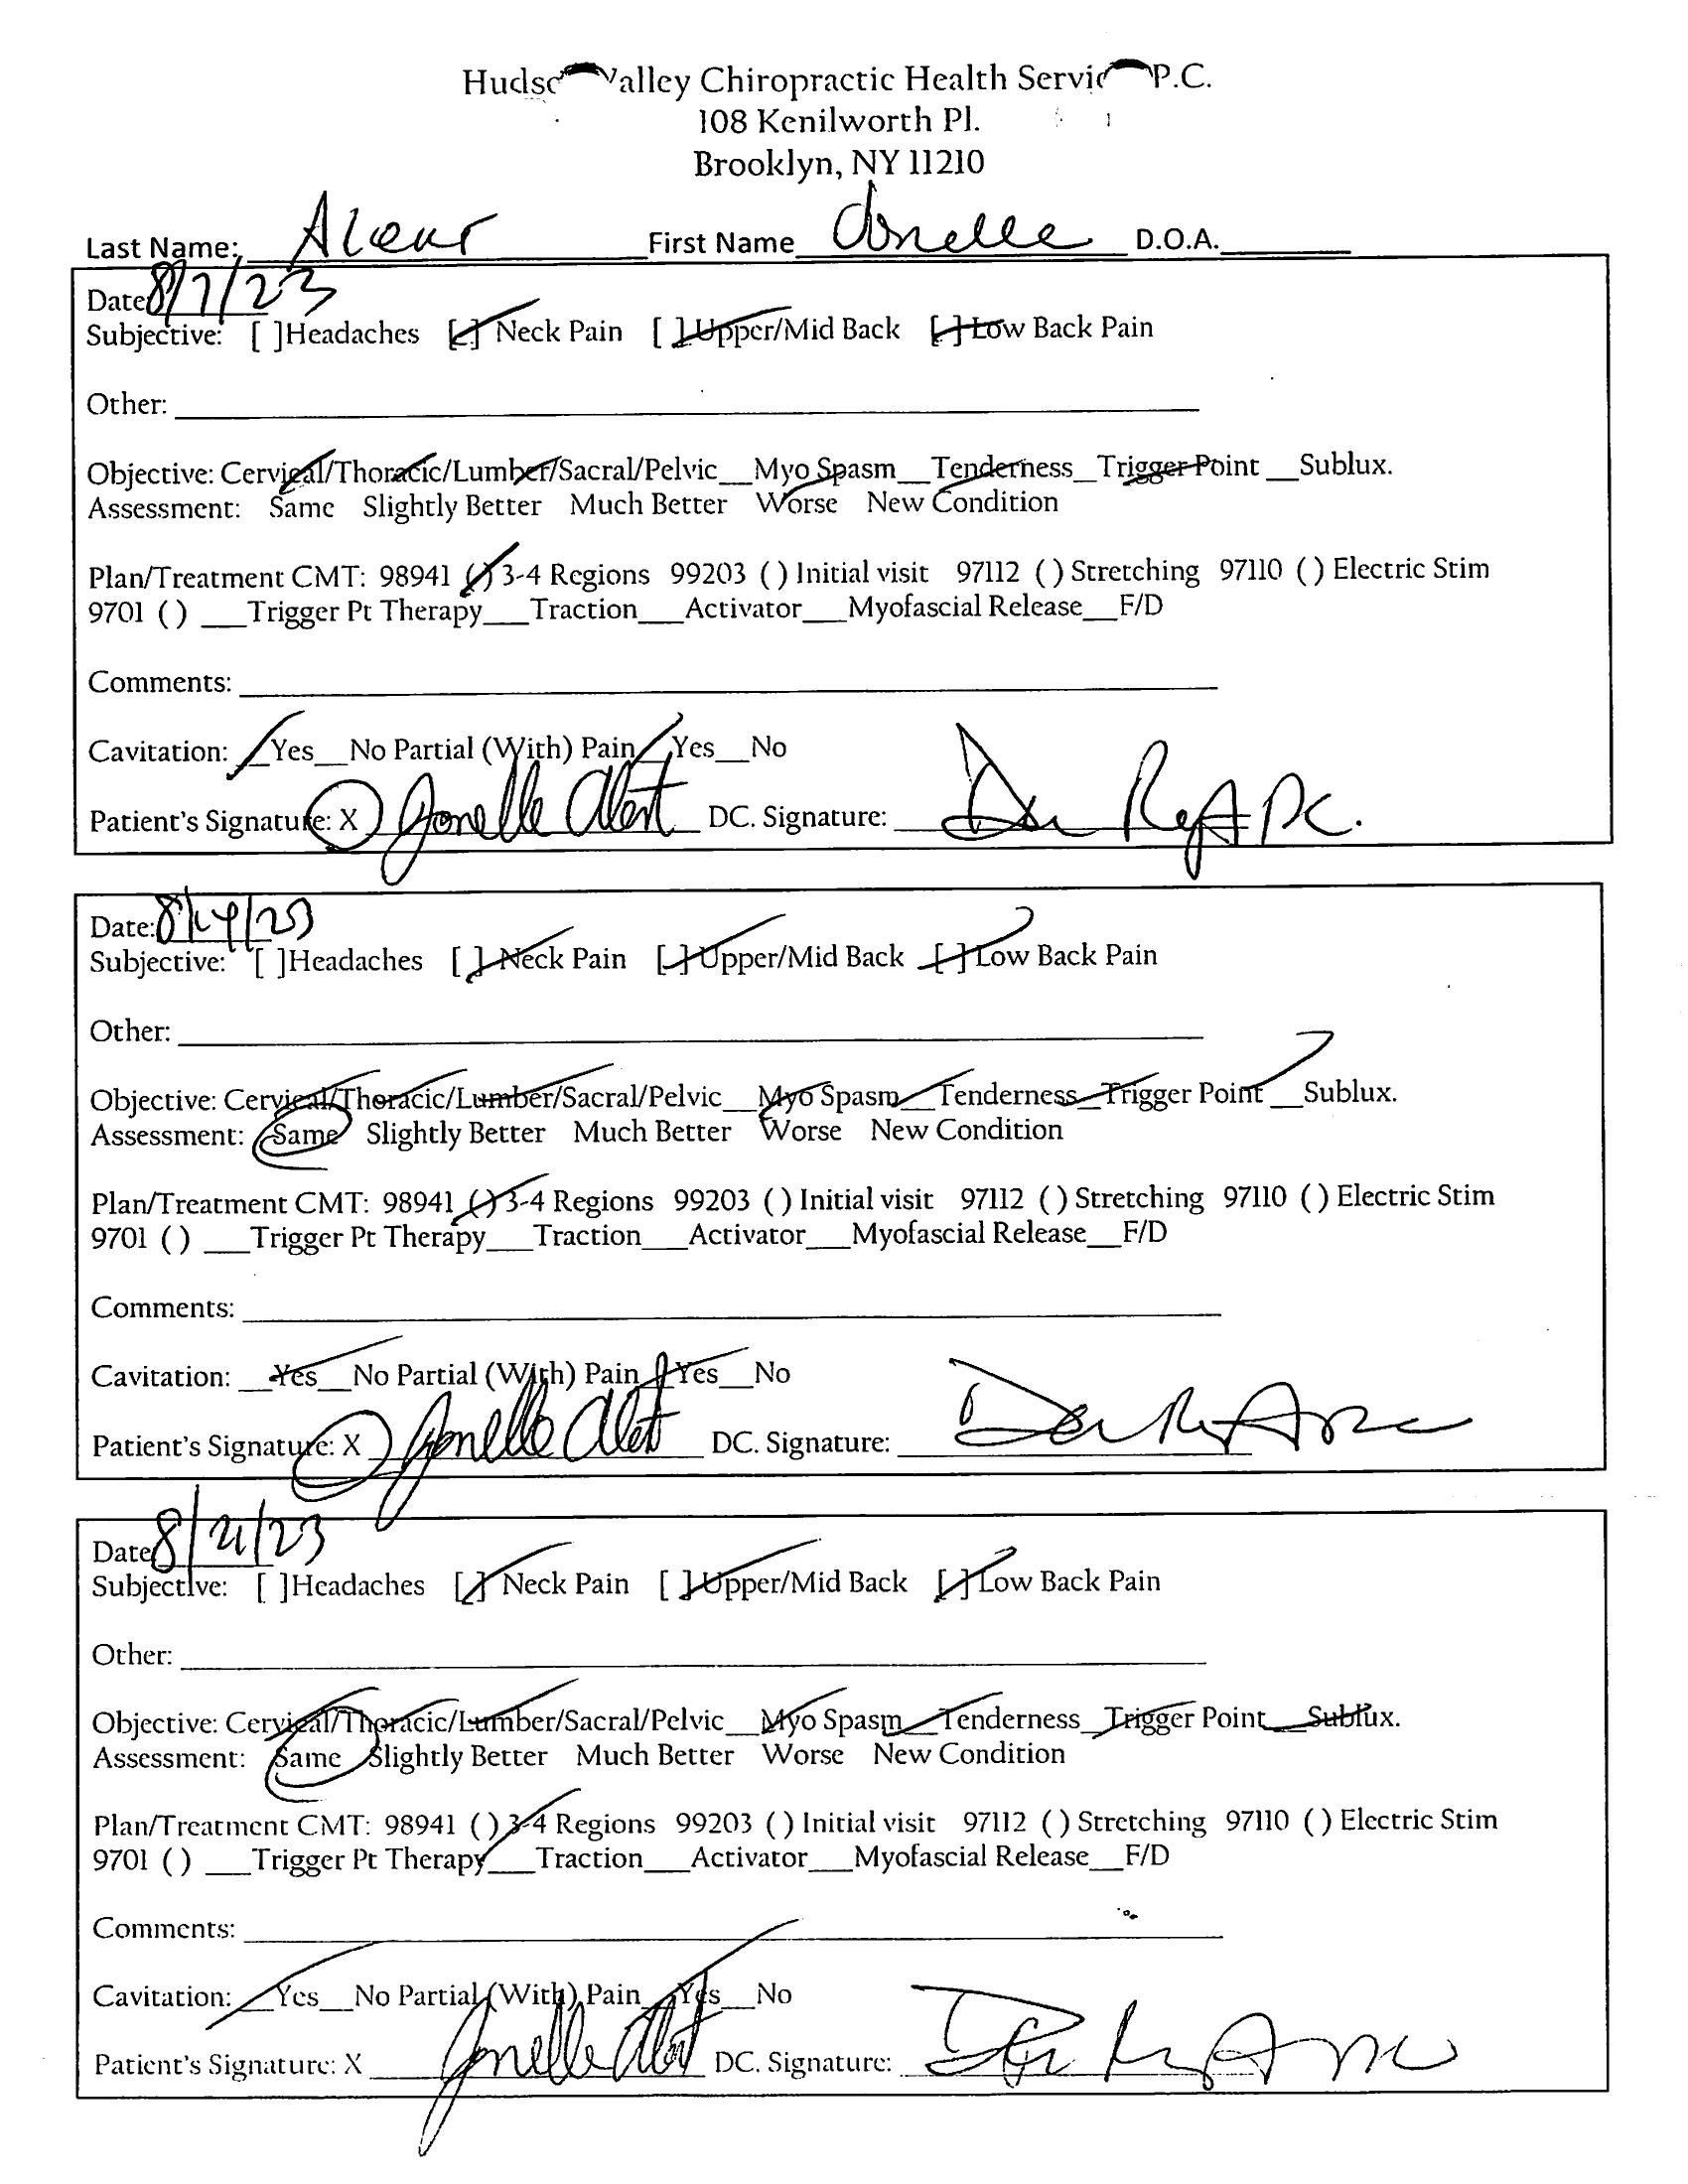 Hudso Valley Chiropractic Health Servic P.C.
108 Kenilworth Pl.
Brooklyn, NY 11210
Last Name: First Name D.O.A.
Date: 8/7/23
Subjective: [ ]Headaches [ ] Neck Pain [ ] Upper/Mid Back [ ] Low Back Pain
Other:
Objective: Cervical/Thoracic/Lumber/Sacral/Pelvic__Myo Spasm__Tenderness_Trigger Point __Sublux.
Assessment: Same Slightly Better Much Better Worse New Condition
Plan/Treatment CMT: 98941 ( ) 3-4 Regions 99203 ( ) Initial visit 97112 ( ) Stretching 97110 ( ) Electric Stim
9701 ( ) ___Trigger Pt Therapy___Traction___Activator___Myofascial Release__F/D
Comments:
Cavitation: __Yes__No Partial (With) Pain__Yes__No
Patient's Signature: X Jonelle Alert DC. Signature:
Date: 8/14/23
Subjective: [ ]Headaches [ ] Neck Pain [ ] Upper/Mid Back [ ] Low Back Pain
Other:
Objective: Cervical/Thoracic/Lumber/Sacral/Pelvic__Myo Spasm__Tenderness_Trigger Point __Sublux.
Assessment: Same Slightly Better Much Better Worse New Condition
Plan/Treatment CMT: 98941 ( ) 3-4 Regions 99203 ( ) Initial visit 97112 ( ) Stretching 97110 ( ) Electric Stim
9701 ( ) ___Trigger Pt Therapy___Traction___Activator___Myofascial Release__F/D
Comments:
Cavitation: __Yes__No Partial (With) Pain__Yes__No
Patient's Signature: X Jonelle Alert DC. Signature:
Date: 8/21/23
Subjective: [ ]Headaches [ ] Neck Pain [ ] Upper/Mid Back [ ] Low Back Pain
Other:
Objective: Cervical/Thoracic/Lumber/Sacral/Pelvic__Myo Spasm__Tenderness_Trigger Point __Sublux.
Assessment: Same Slightly Better Much Better Worse New Condition
Plan/Treatment CMT: 98941 ( ) 3-4 Regions 99203 ( ) Initial visit 97112 ( ) Stretching 97110 ( ) Electric Stim
9701 ( ) ___Trigger Pt Therapy___Traction___Activator___Myofascial Release__F/D
Comments:
Cavitation: __Yes__No Partial (With) Pain__Yes__No
Patient's Signature: X Jonelle Alert DC. Signature: